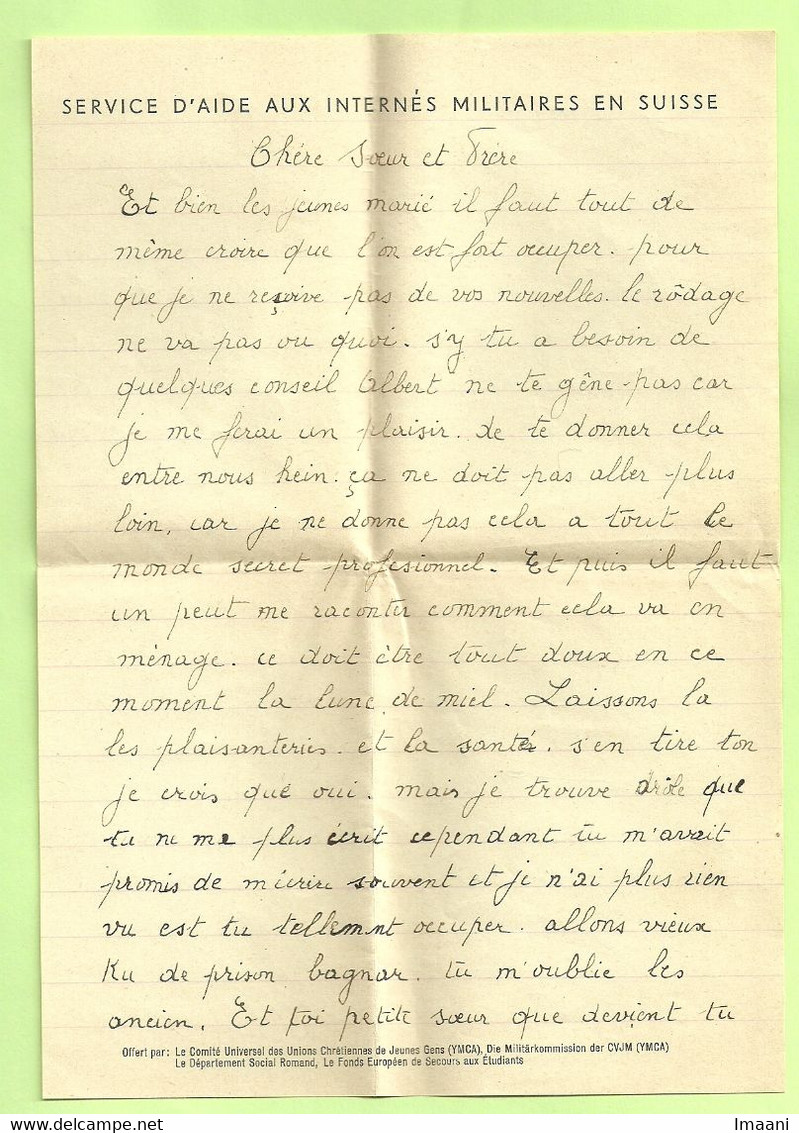 SERVICE D'AIDE AUX INTERNÉS MILITAIRES EN SUISSE
Chére Sœur et Frére
Et bien les jeunes marié il faut tout de
même croire que l'on est fort occuper. pour
que je ne resçoive pas de vos nouvelles. le rôdage
ne va pas ou quoi. s'y tu a besoin de
quelques conseil Albert ne te gêne pas car
je me ferai un plaisir. de te donner cela
entre nous hein. ça ne doit pas aller plus
loin, car je ne donne pas cela a tout le
monde secret profesionnel. Et puis il faut
un peut me raconter comment cela va en
ménage. ce doit être tout doux en ce
moment la lune de miel. Laissons la
les plaisanteries. et la santé. s'en tire ton
je crois que oui. mais je trouve drôle que
tu ne me plus écrit cependant tu m'avait
promis de m'écrire souvent et je n'ai plus rien
vu est tu tellement occuper. allons vieux
Ku de prison bagnar. tu m'oublie les
ancien. Et toi petite sœur que devient tu
Offert par: Le Comité Universel des Unions Chrétiennes de Jeunes Gens (YMCA), Die Militärkommission der CVJM (YMCA)
Le Département Social Romand, Le Fonds Européen de Secours aux Étudiants
Imaani